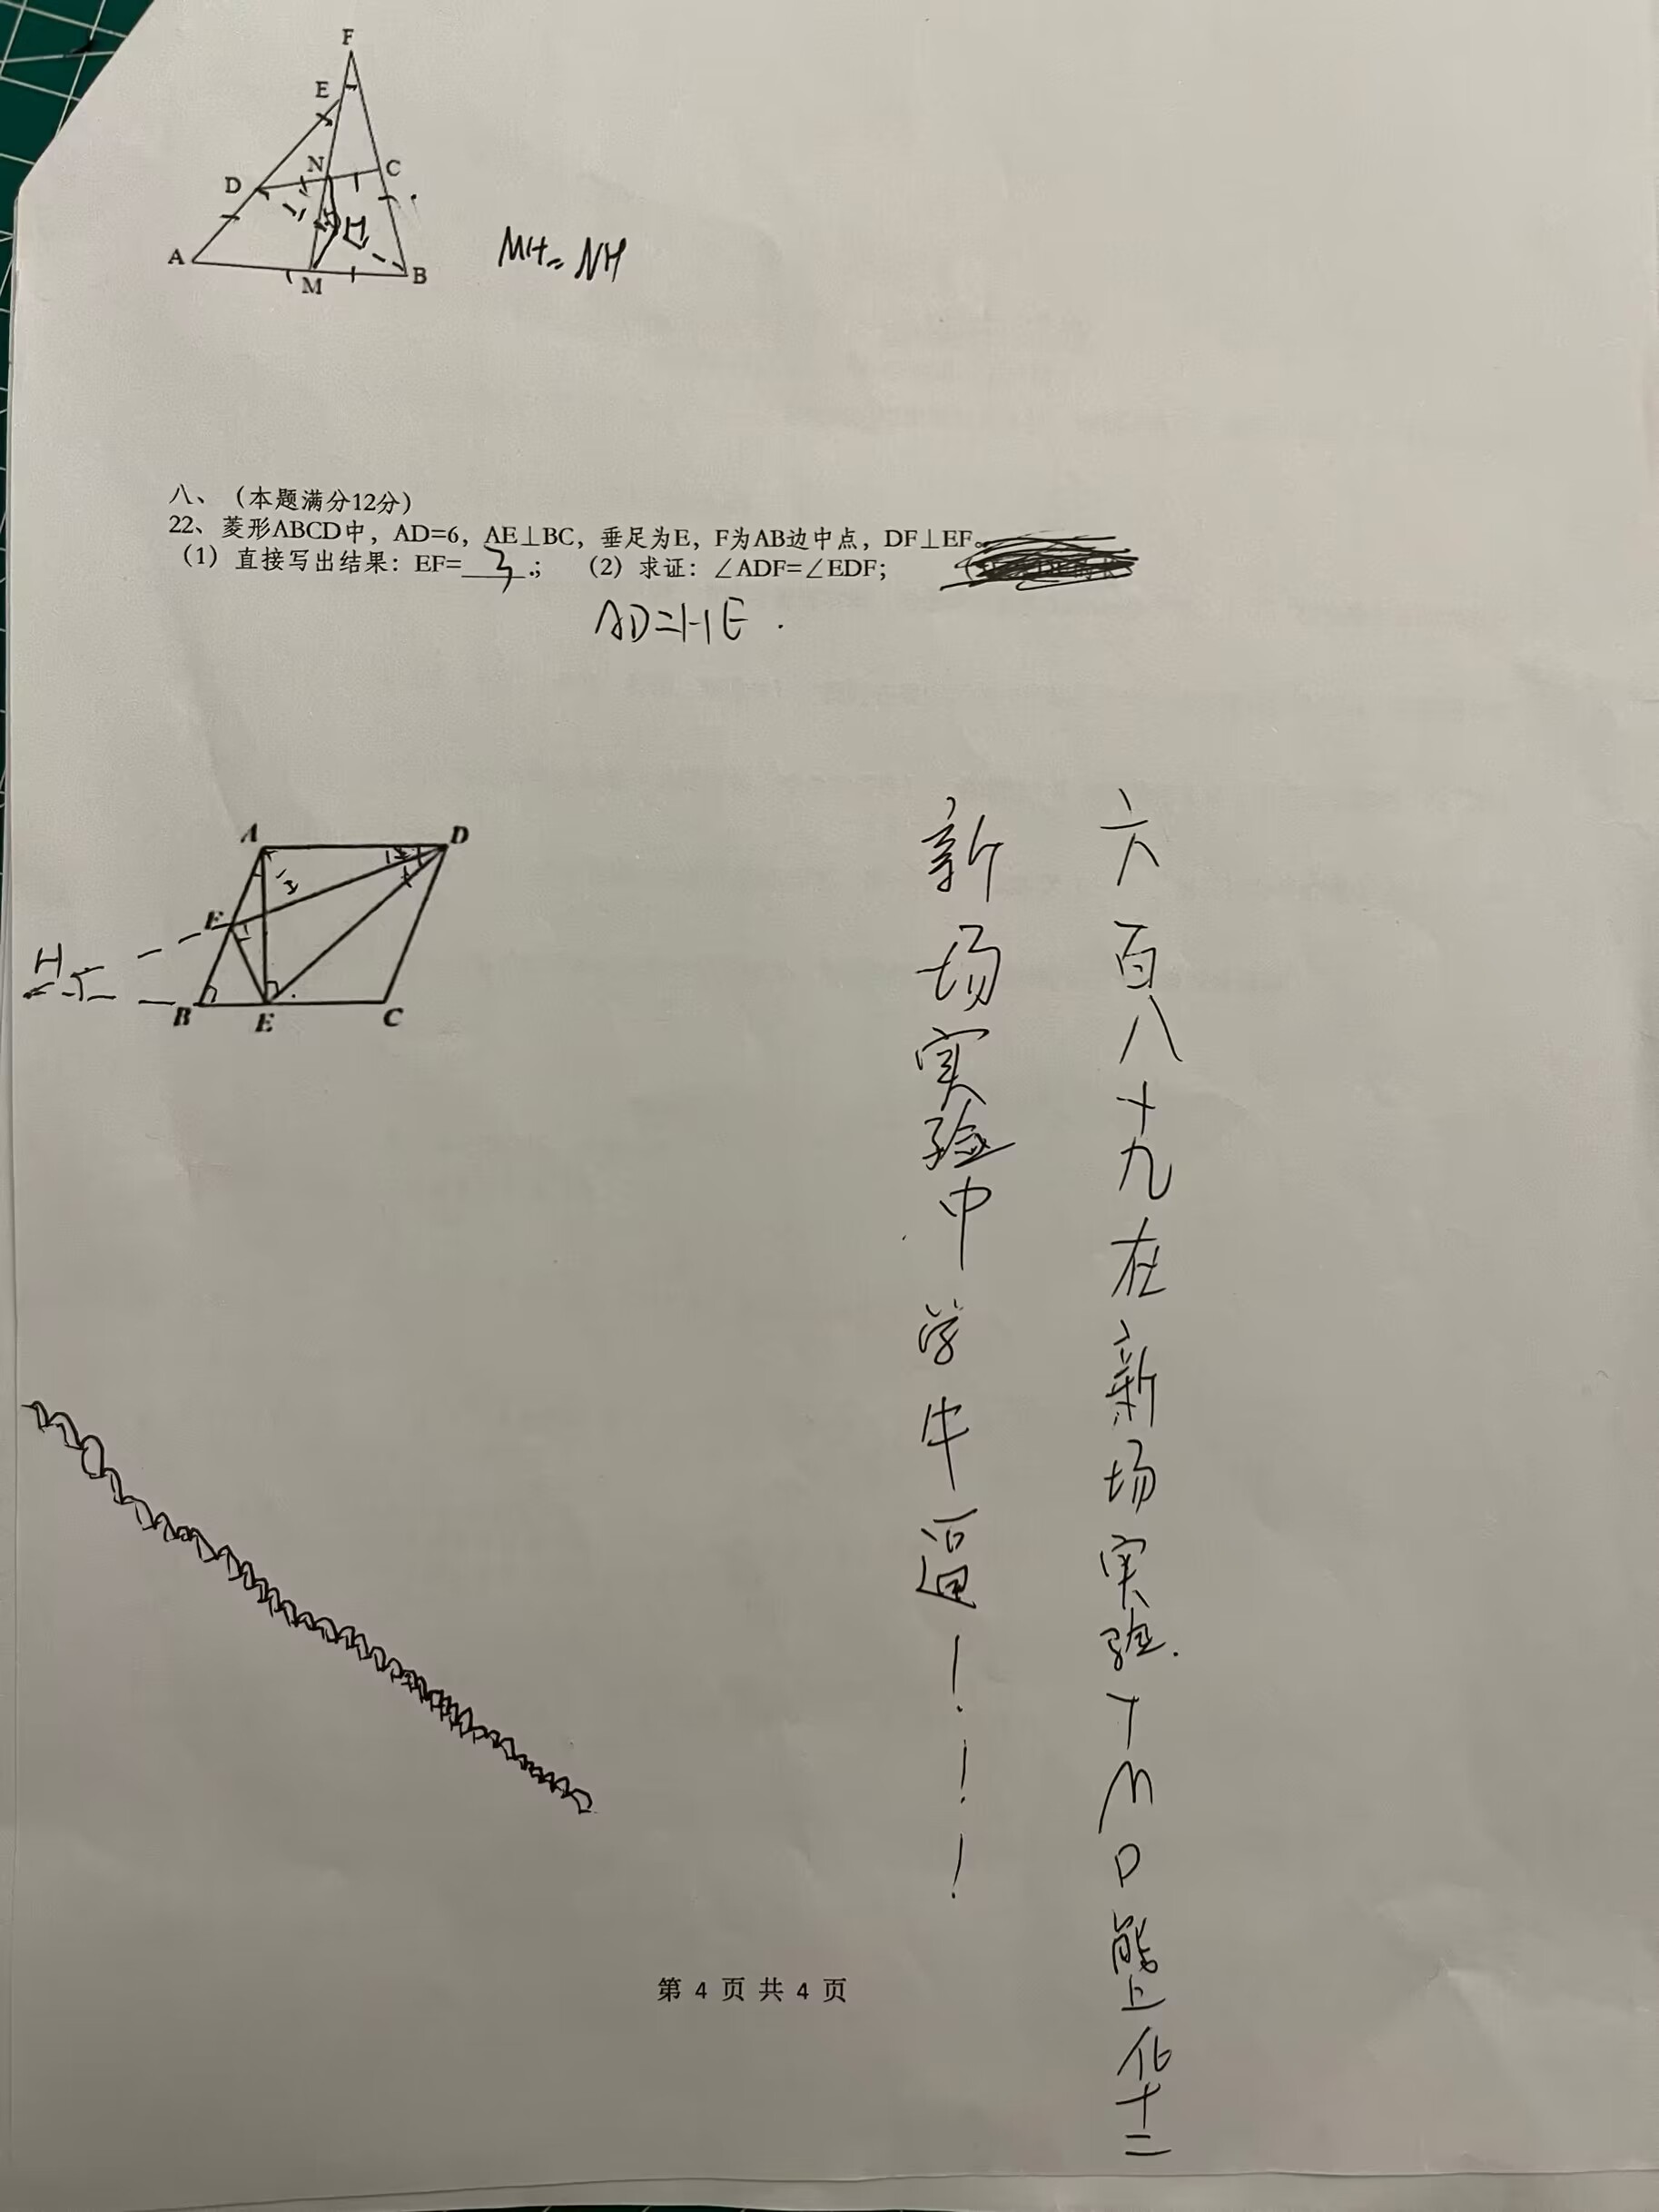 F
E
N
C
D
H
A
M
B
MH=NH
八、（本题满分12分）
22、菱形ABCD中，AD=6，AE⊥BC，垂足为E，F为AB边中点，DF⊥EF。
（1）直接写出结果：EF=3.；（2）求证：∠ADF=∠EDF；
AD=HE.
A
D
F
H
B
E
C
六百八十九在新场实验.YMD能上华十二
新场实验中学牛逼！！！
第 4 页 共 4 页